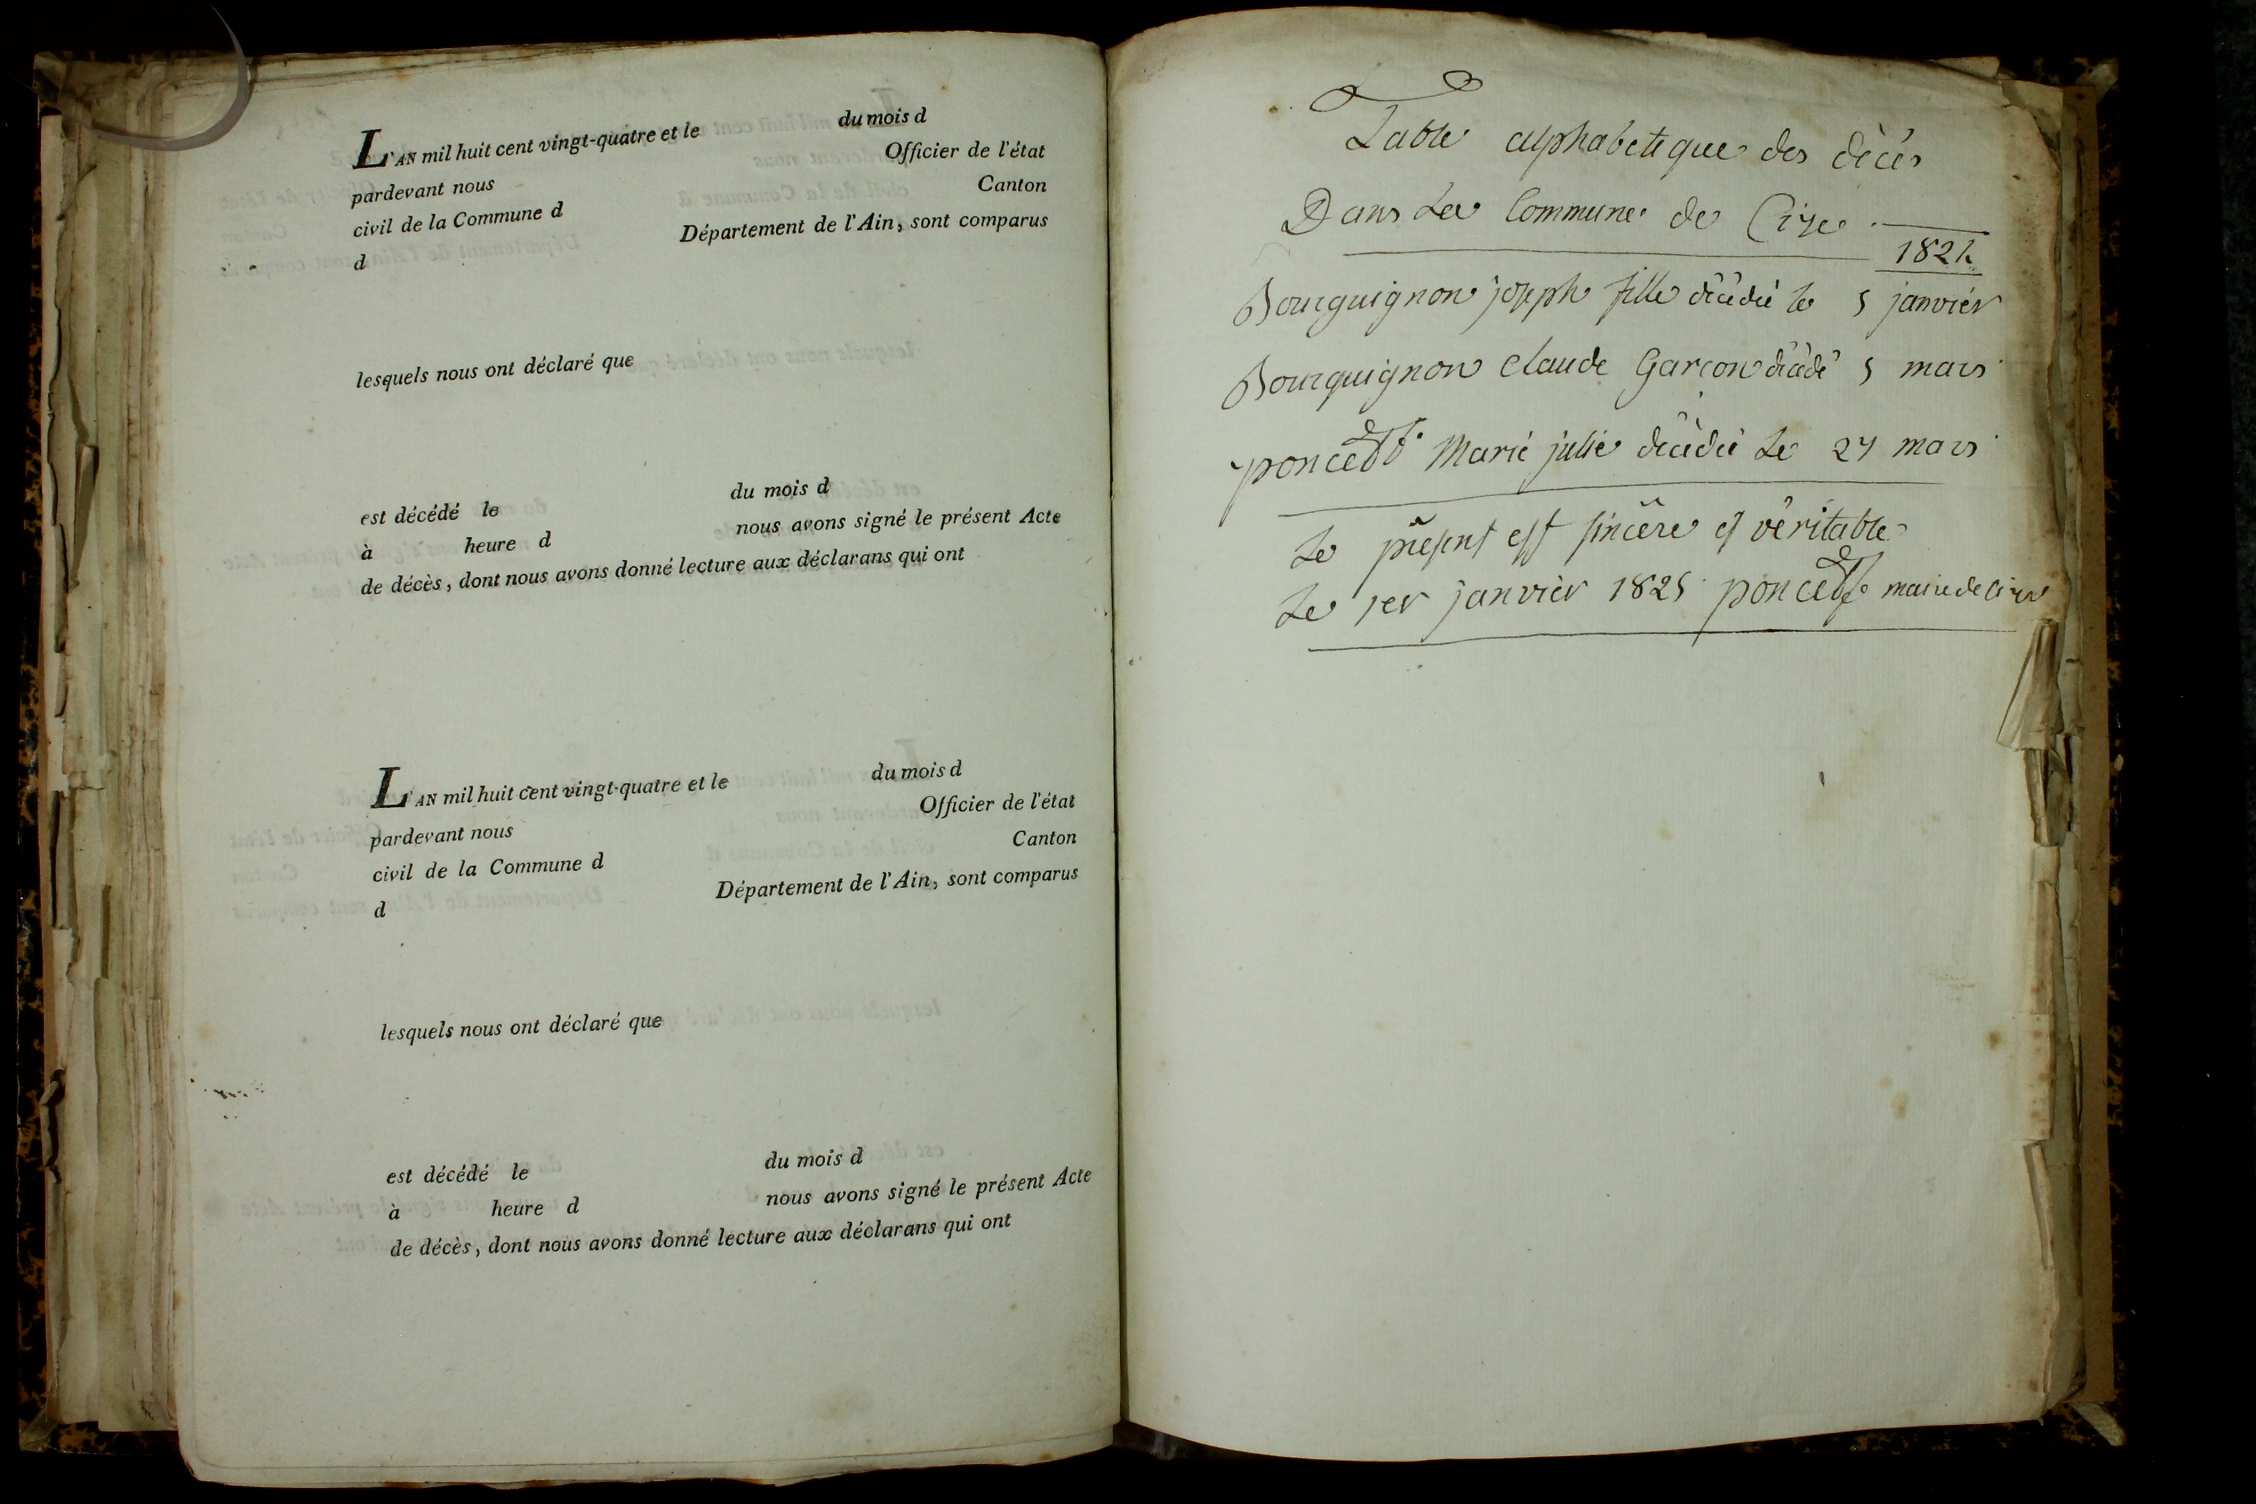 L'AN mil huit cent vingt-quatre et le du mois d
pardevant nous Officier de l'état
civil de la Commune d Canton
d Département de l'Ain, sont comparus
lesquels nous ont déclaré que
est décédé le du mois d
à heure d nous avons signé le présent Acte
de décès, dont nous avons donné lecture aux déclarans qui ont
L'AN mil huit cent vingt-quatre et le du mois d
pardevant nous Officier de l'état
civil de la Commune d Canton
d Département de l'Ain, sont comparus
lesquels nous ont déclaré que
est décédé le du mois d
à heure d nous avons signé le présent Acte
de décès, dont nous avons donné lecture aux déclarans qui ont
Table alphabetique des décès
Dans La Commune de Cize
1824
Bourguignon joseph fille décédé le 5 janvier
Bourguignon Claude Garcon décédé 5 mars
poncet Marie julie décédé Le 27 mars
Le present est sincère et véritable
Le 1er janvier 1825 poncet maire de Cize